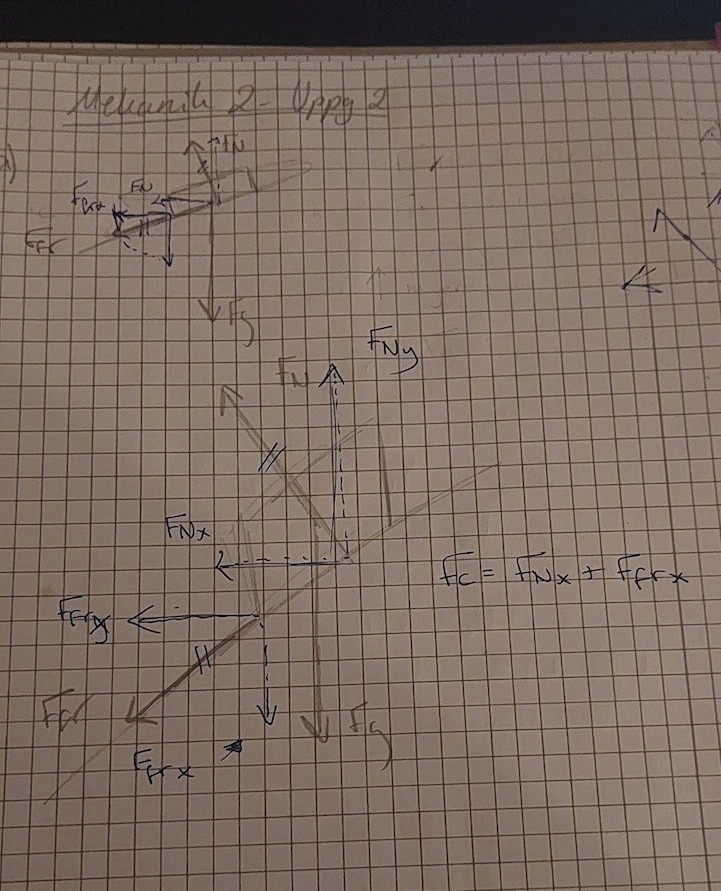 Mekanik 2 - Uppg 2
a)
FN
FN
Ffrx
Ffr
Fg
FNy
FN
FNx
Fc = FNx + Ffrx
Ffrx
Ffr
Fg
Ffrx